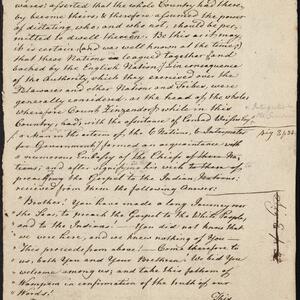 wares) asserted that the whole Country had there,
by become theirs & therefore assumed the power
of dictating who, and who not, should be per,
mitted to dwell therein. Be this as it may,
it is certain, (and was well known at the time,)
that these Nations leagued together, and
backed by the English Nation, & in consequence
of the Authority which they exercised over the
Delawares and other Nations and Tribes, were
generally considered as the head of the whole,
wherefore Count Zinzendorf while in this
Country, had, with the assistance of Conrad Weißer,
(a Man in the esteem of the 6 Nations, & Interpreter
for Government) formed an acquaintance with
a numerous Embassy of the Chiefs of these Na,
tions; and his wish to them of
repeating the Gospel to the Indian Nations,
received from them the following Answer:
"Brother! You have made a long Journey over
the Sea, to preach the Gospel to the White People,
and to the Indians. You did not know that
we were here, and we knew nothing of You.—
This proceeds from above!— Come therefore to
us, both You and Your Brethren! We bid You
welcome among us, and take this fathom of
Wampum in confirmation of the truth of our
Words!"
This